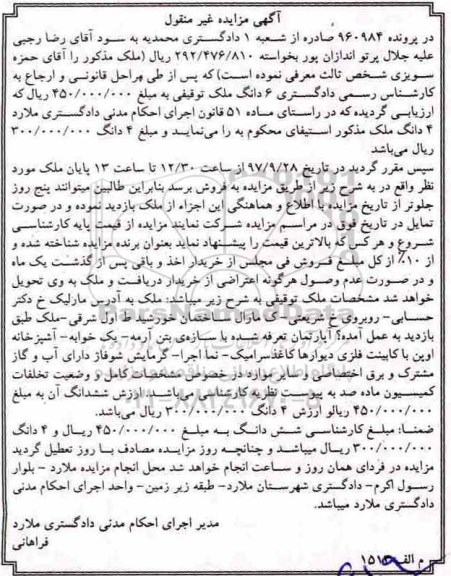 آگهی مزایده غیر منقول
در پرونده ۹۶۰۹۸۴ صادره از شعبه ۱ دادگستری محمدیه به سود آقای رضا رجبی
علیه جلال پرتو اندازان پور بخواسته ۲۹۲/۴۷۶/۸۱۰ ریال (ملک مذکور را آقای حمزه
سویزی شخص ثالث معرفی نموده است) که پس از طی مراحل قانونی و ارجاع به
کارشناس رسمی دادگستری ۶ دانگ ملک توقیفی به مبلغ ۴۵۰/۰۰۰/۰۰۰ ریال که
ارزیابی گردیده که در راستای ماده ۵۱ قانون اجرای احکام مدنی دادگستری ملارد
۴ دانگ ملک مذکور استیفای محکوم به را می‌نمایند و مبلغ ۴ دانگ ۳۰۰/۰۰۰/۰۰۰
ریال می‌باشد
سپس مقرر گردید در تاریخ ۹۷/۹/۲۸ از ساعت ۱۲/۳۰ تا ساعت ۱۳ پایان ملک مورد
نظر واقع در به شرح زیر از طریق مزایده به فروش برسد بنابراین طالبین میتوانند پنج روز
جلوتر از تاریخ مزایده با اطلاع و هماهنگی این اجراء از ملک بازدید نموده و در صورت
تمایل در تاریخ فوق در مراسم مزایده شرکت نمایند مزایده از قیمت پایه کارشناسی
شروع و هر کس که بالاترین قیمت را پیشنهاد نماید بعنوان برنده مزایده شناخته شده و
از ۱۰٪ از کل مبلغ فروش فی مجلس از خریدار اخذ و باقی پس از گذشت یک ماه
و در صورت عدم وصول هرگونه اعتراضی از خریدار دریافت و ملک به وی تحویل
خواهد شد مشخصات ملک توقیفی به شرح زیر میباشد: ملک به آدرس مارلیک خ دکتر
حسابی- روبروی خ شریعتی- گلمازال ساختمان خورشید ط اول شرقی-ملک طبق
بازدید به عمل آمده؟ آپارتمان تعرفه شده با سازه‌ی بتن آرمه- یک خوابه- آشپزخانه
اوپن با کابینت فلزی دیوارها کاغذسرامیک- نما اجرا- گرمایش شوفاژ دارای آب و گاز
مشترک و برق اختصاصی و سایر موارد در خصوص مشخصات کامل و وضعیت تخلفات
کمیسیون ماده صد به پیوست نظریه کارشناسی می‌باشد: ارزش ششدانگ آن به مبلغ
۴۵۰/۰۰۰/۰۰۰ ریالو ارزش ۴ دانگ ۳۰۰/۰۰۰/۰۰۰ ریال می‌باشد.
ضمنا: مبلغ کارشناسی شش دانگ به مبلغ ۴۵۰/۰۰۰/۰۰۰ ریال و ۴ دانگ
۳۰۰/۰۰۰/۰۰۰ ریال میباشد و چنانچه روز مزایده مصادف با روز تعطیل گردید
مزایده در فردای همان روز و ساعت انجام خواهد شد محل انجام مزایده ملارد - بلوار
رسول اکرم- دادگستری شهرستان ملارد- طبقه زیر زمین- واحد اجرای احکام مدنی
دادگستری ملارد میباشد.
مدیر اجرای احکام مدنی دادگستری ملارد
فراهانی
م الف ۱۵۱۵